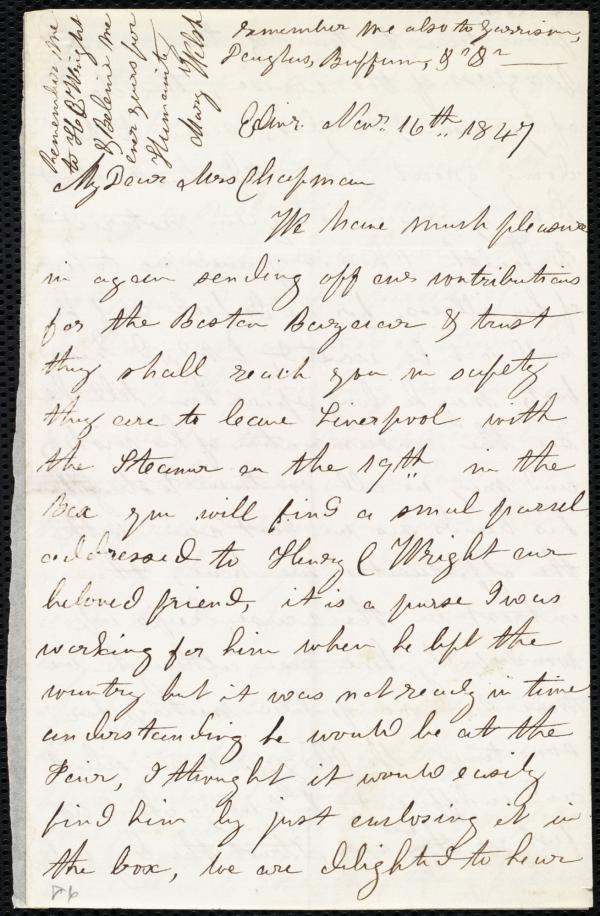 Remember me
to H C Wright
& Believe me
ever yours for
Humanity
Mary Welsh
remember me also to Garrison,
Douglas, Buffum, &c &c
Edinr. Novr. 16th. 1847
My Dear Mrs Chapman
We have much pleasure
in again sending off our contributions
for the Boston Bazaar & trust
they shall reach you in safety
they are to leave Liverpool with
the Steamer on the 19th in the
Box you will find a smal parsel
addressed to Henry C Wright our
beloved friend, it is a purse I was
working for him when he left the
country but it was not ready in time
understanding he would be at the
Fair, I thought it would easily
find him by just enclosing it in
the box, we are delighted to hear